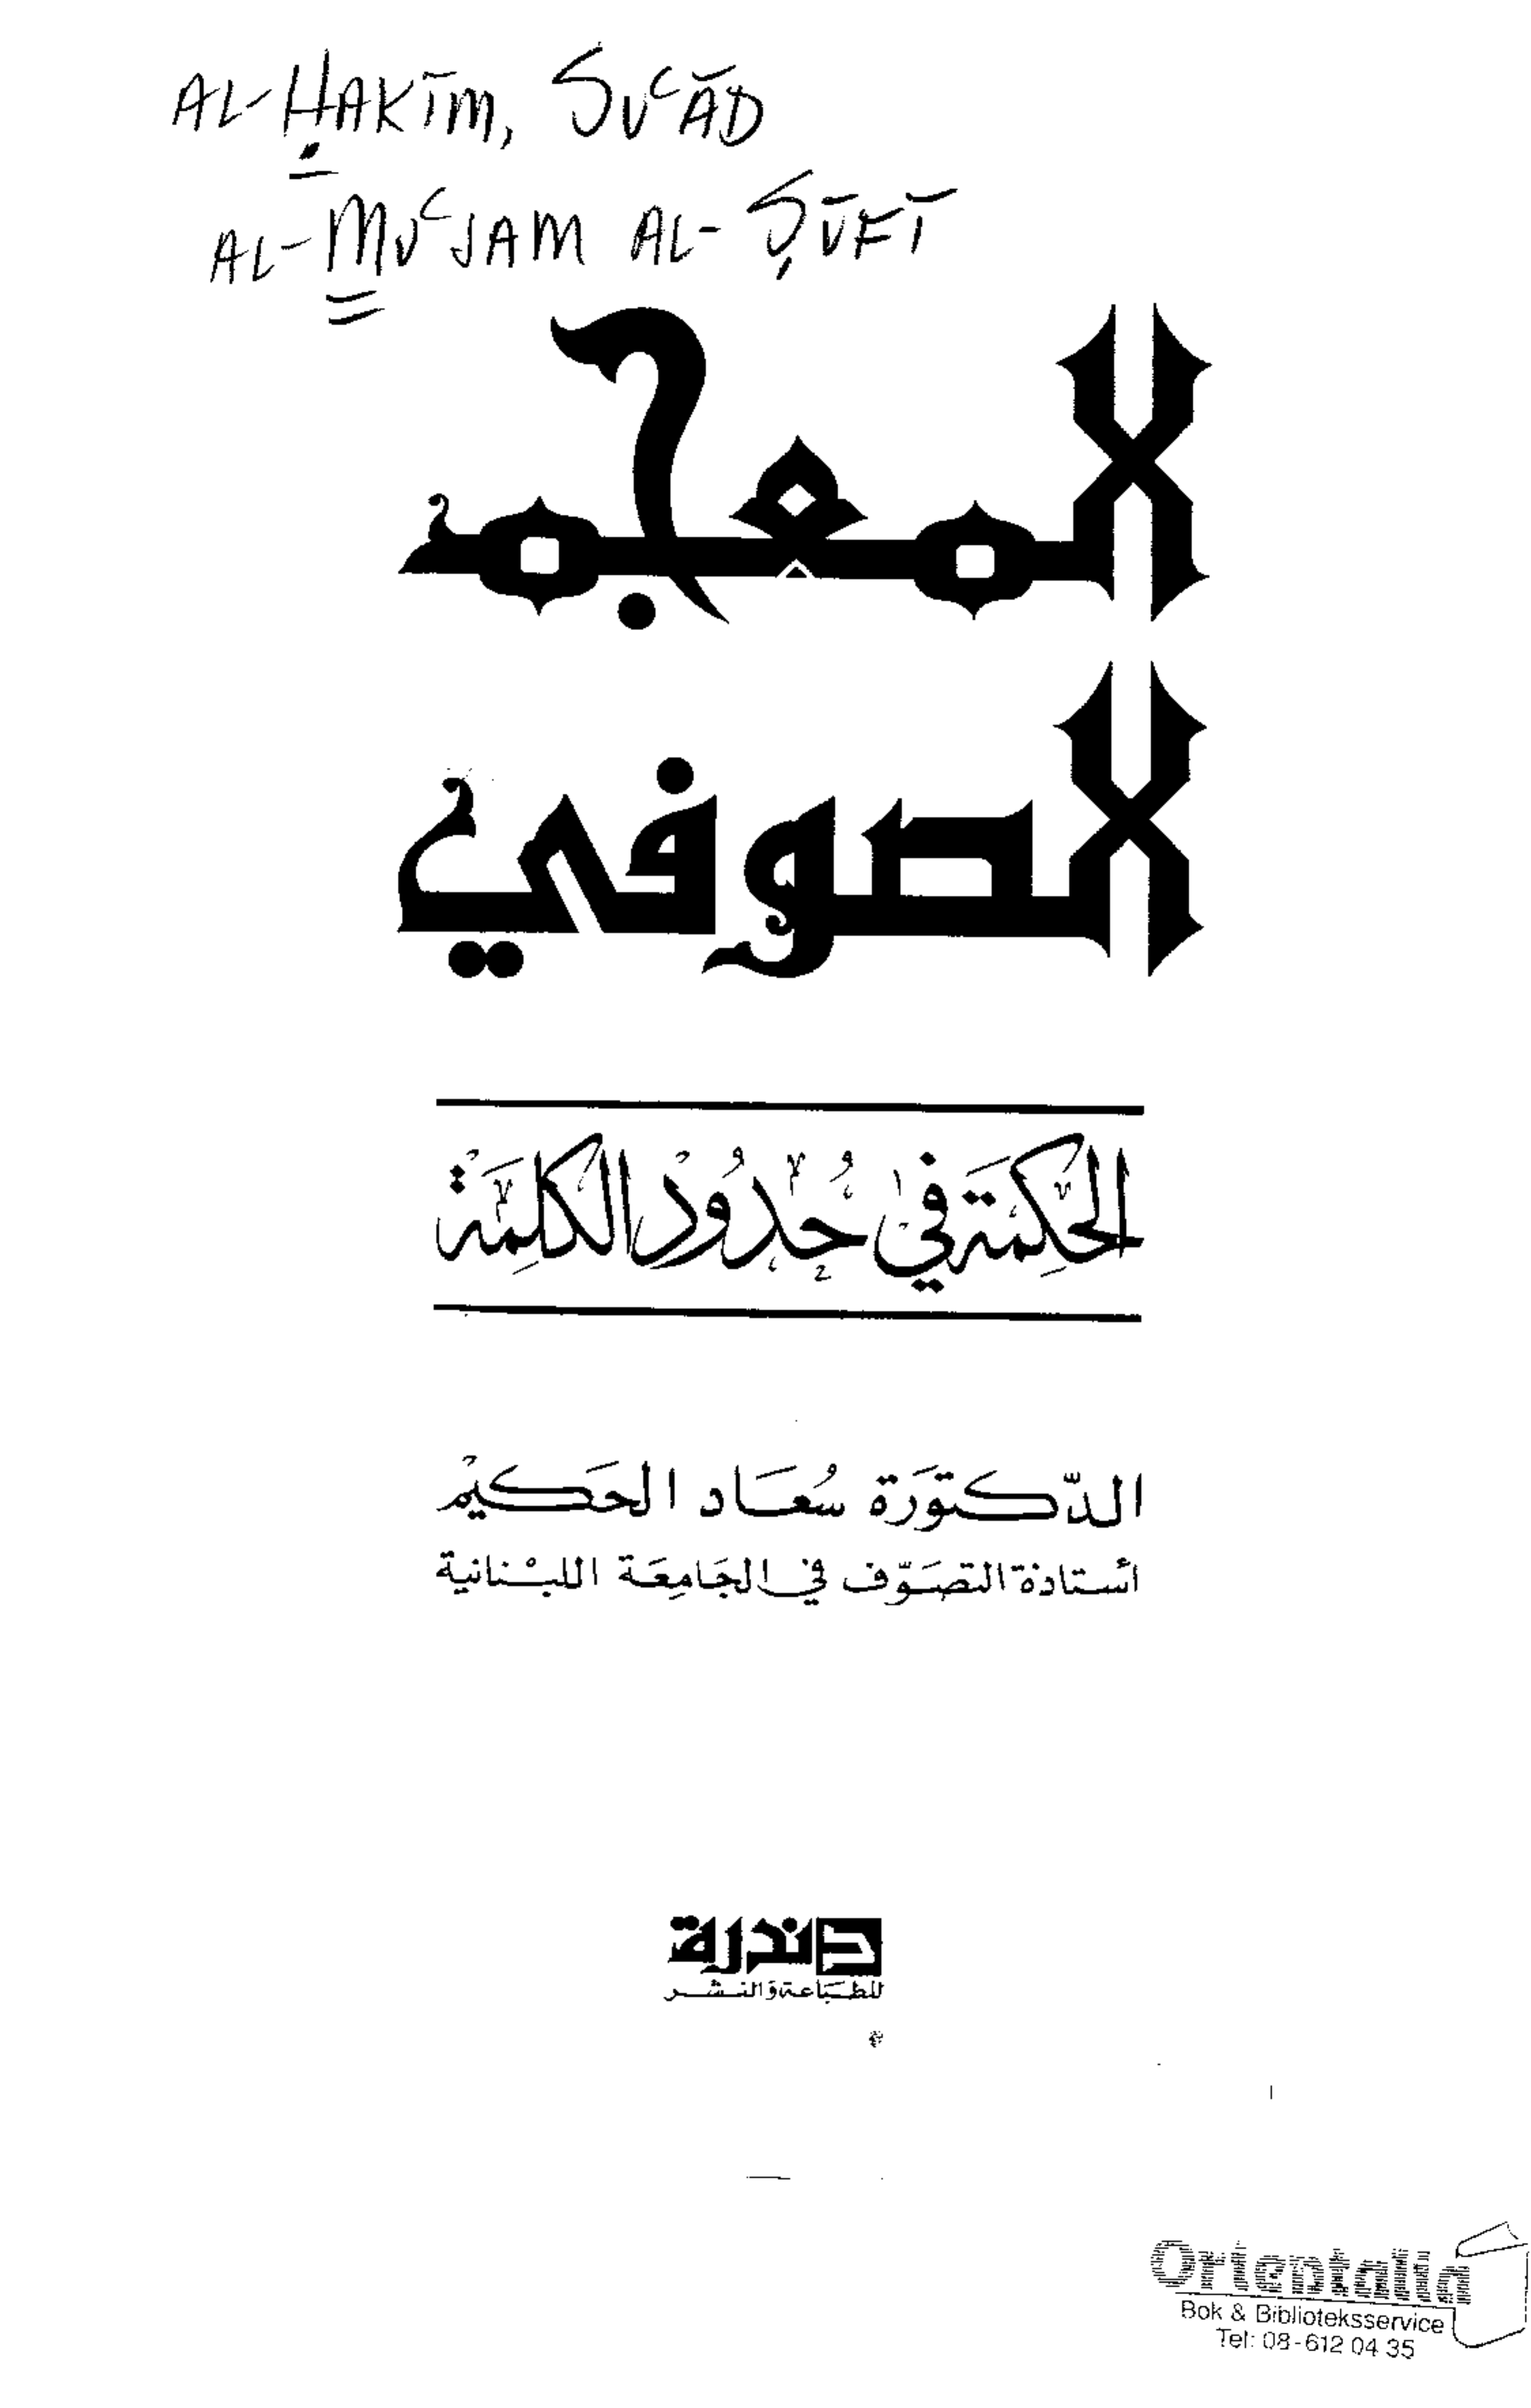 AL-ḤAKĪM, SUʿĀD
AL-MUʿJAM AL-ṢŪFĪ
المعجم
الصوفي
الحِكمَة في حُدُودْ الكلِمَةْ
الدّكتورَة سُعَاد الحَكيمْ
أستاذة التصَوّف في الجَامِعَة اللبْنانية
دندرة
للطبَاعة وَالنشر
Orientalia
Bok & Biblioteksservice
Tel: 08-612 04 35